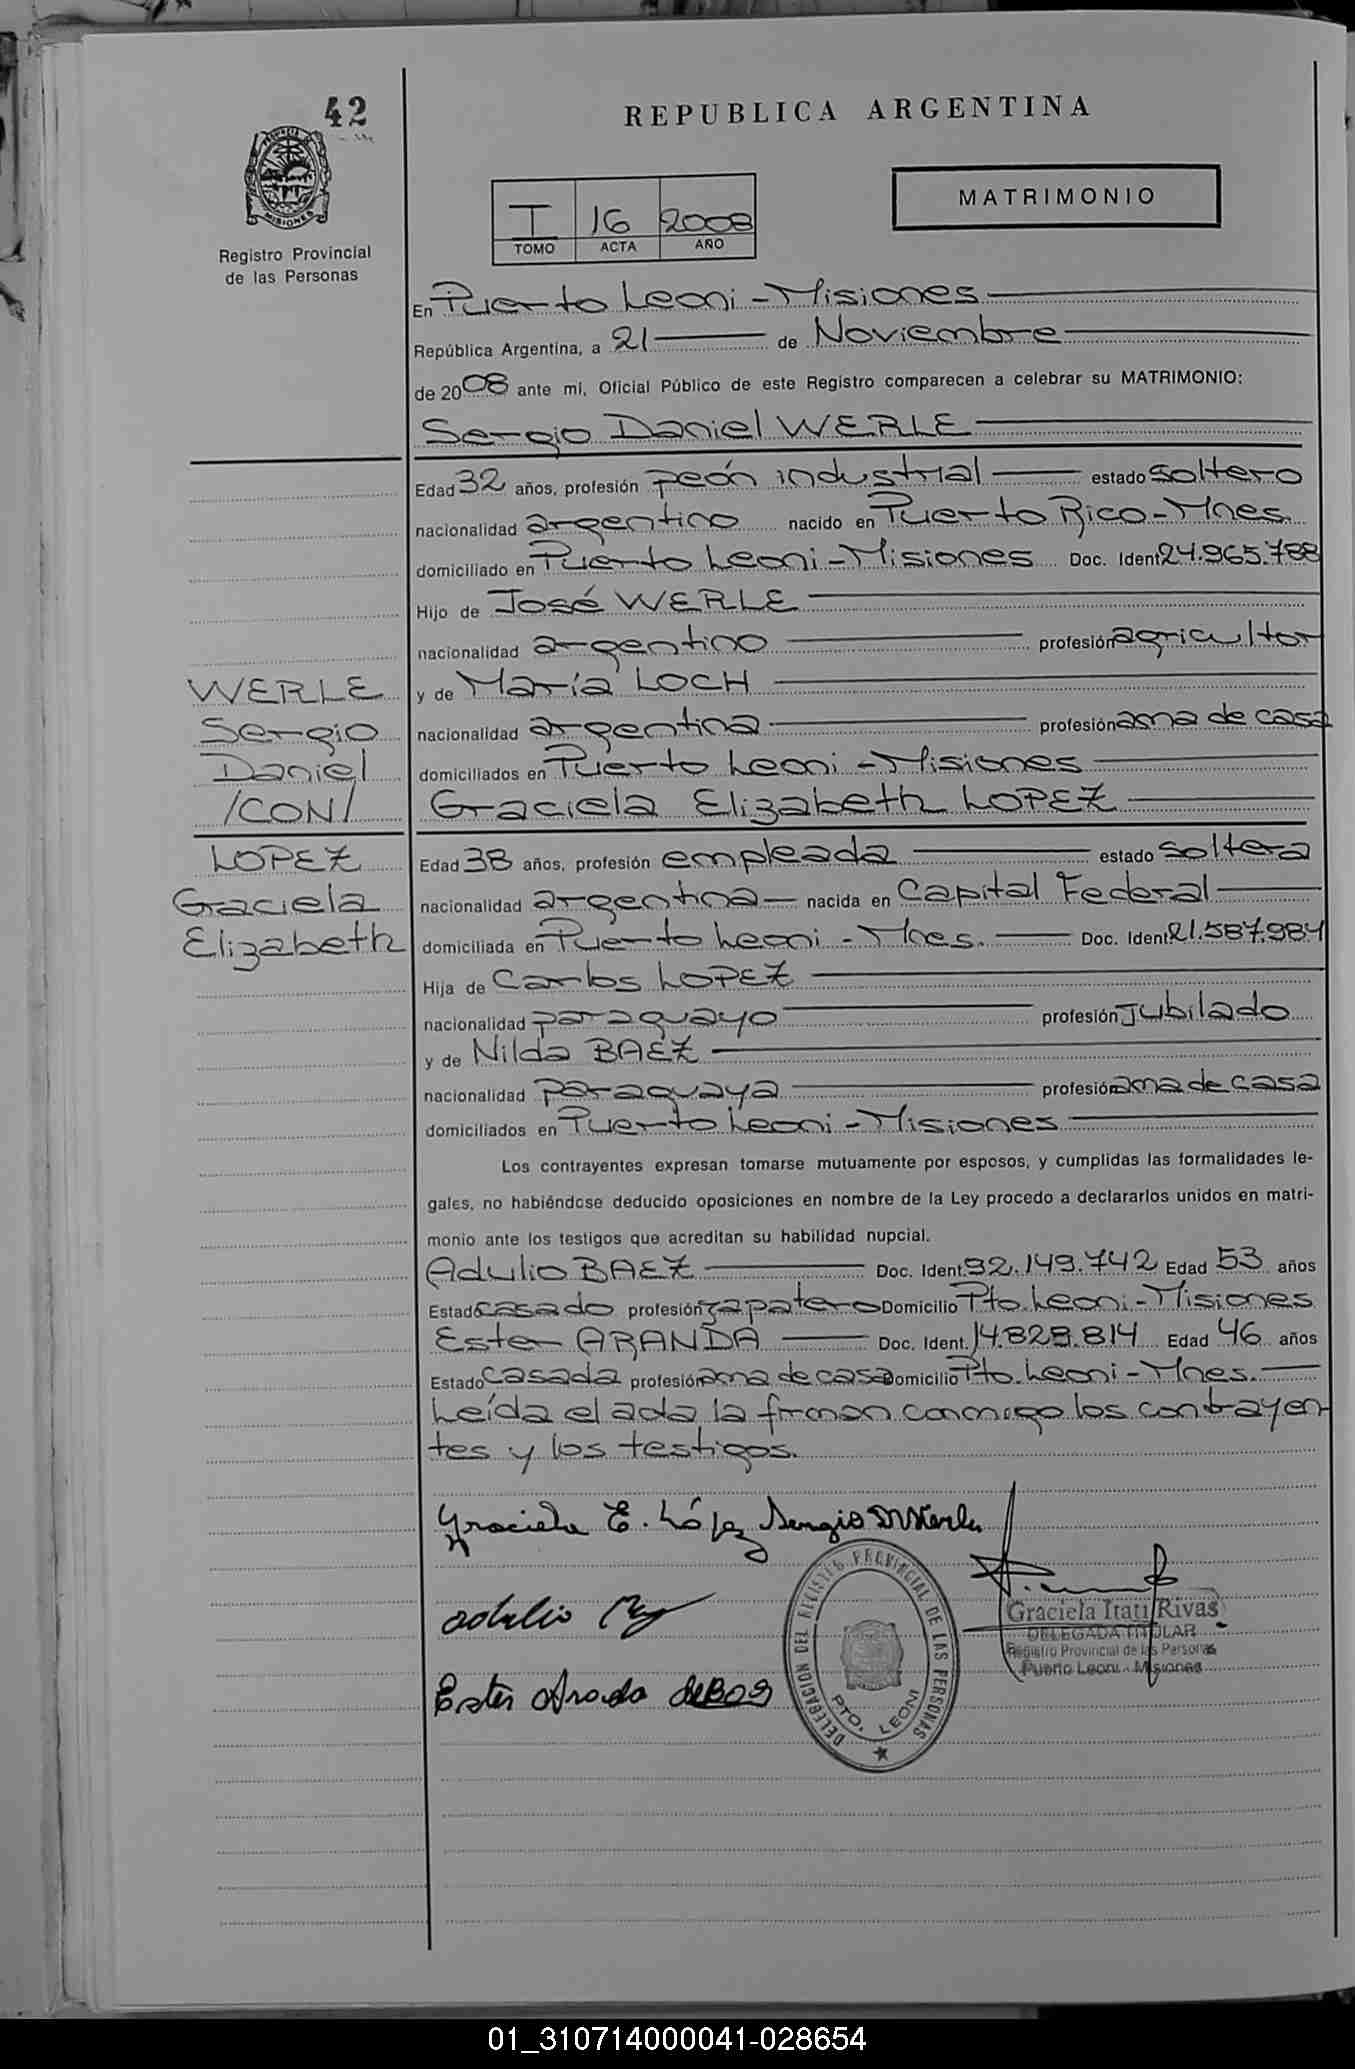 42
REPUBLICA ARGENTINA
MISIONES
Registro Provincial
de las Personas
I 16 2008
TOMO ACTA AÑO
MATRIMONIO
En Puerto Leoni - Misiones
República Argentina, a 21 de Noviembre
de 2008 ante mi, Oficial Público de este Registro comparecen a celebrar su MATRIMONIO:
Sergio Daniel WERLE
Edad 32 años, profesión peón industrial estado soltero
nacionalidad argentino nacido en Puerto Rico - Mnes.
domiciliado en Puerto Leoni - Misiones Doc. Ident. 24.965.788
Hijo de José WERLE
nacionalidad argentino profesión agricultor
y de María LOCH
nacionalidad argentina profesión ama de casa
domiciliados en Puerto Leoni - Misiones
WERLE
Sergio
Daniel
/CON/
LOPEZ
Graciela
Elizabeth
Graciela Elizabeth LOPEZ
Edad 38 años, profesión empleada estado soltera
nacionalidad argentina nacida en Capital Federal
domiciliada en Puerto Leoni - Mnes. Doc. Ident. 21.587.984
Hija de Carlos LOPEZ
nacionalidad paraguayo profesión jubilado
y de Nilda BAEZ
nacionalidad paraguaya profesión ama de casa
domiciliados en Puerto Leoni - Misiones
Los contrayentes expresan tomarse mutuamente por esposos, y cumplidas las formalidades le-
gales, no habiéndose deducido oposiciones en nombre de la Ley procedo a declararlos unidos en matri-
monio ante los testigos que acreditan su habilidad nupcial.
Adulio BAEZ Doc. Ident. 92.149.742 Edad 53 años
Estado casado profesión zapatero Domicilio Pto. Leoni - Misiones
Ester ARANDA Doc. Ident. 14.829.814 Edad 46 años
Estado casada profesión ama de casa Domicilio Pto. Leoni - Mnes.
Leída el acta la firman conmigo los contrayen-
tes y los testigos.
Graciela E. López Sergio D Werle
adulio
Ester Aranda de
DELEGACION DEL REGISTRO PROVINCIAL DE LAS PERSONAS
PTO. LEONI
Graciela Itatí Rivas
DELEGADA TITULAR
Registro Provincial de las Personas
Puerto Leoni - Misiones
01_310714000041-028654